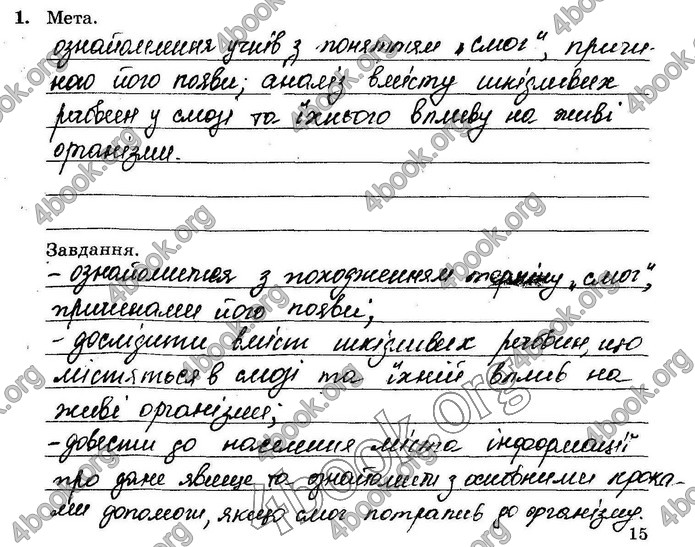 1. Мета.
ознайомлення учнів з поняттям „смог“, причи-
ною його появи; аналіз вмісту шкідливих
речовин у смозі та їхнього впливу на живі
організми.
Завдання.
- ознайомитися з походженням терміну „смог“,
причинами його появи;
- дослідити вміст шкідливих речовин, що
містяться в смозі та їхній вплив на
живі організми;
- довести до населення міста інформації
про дане явище та ознайомити з основними крока-
ми допомоги, якщо смог потрапив до організму.
15
4book.org